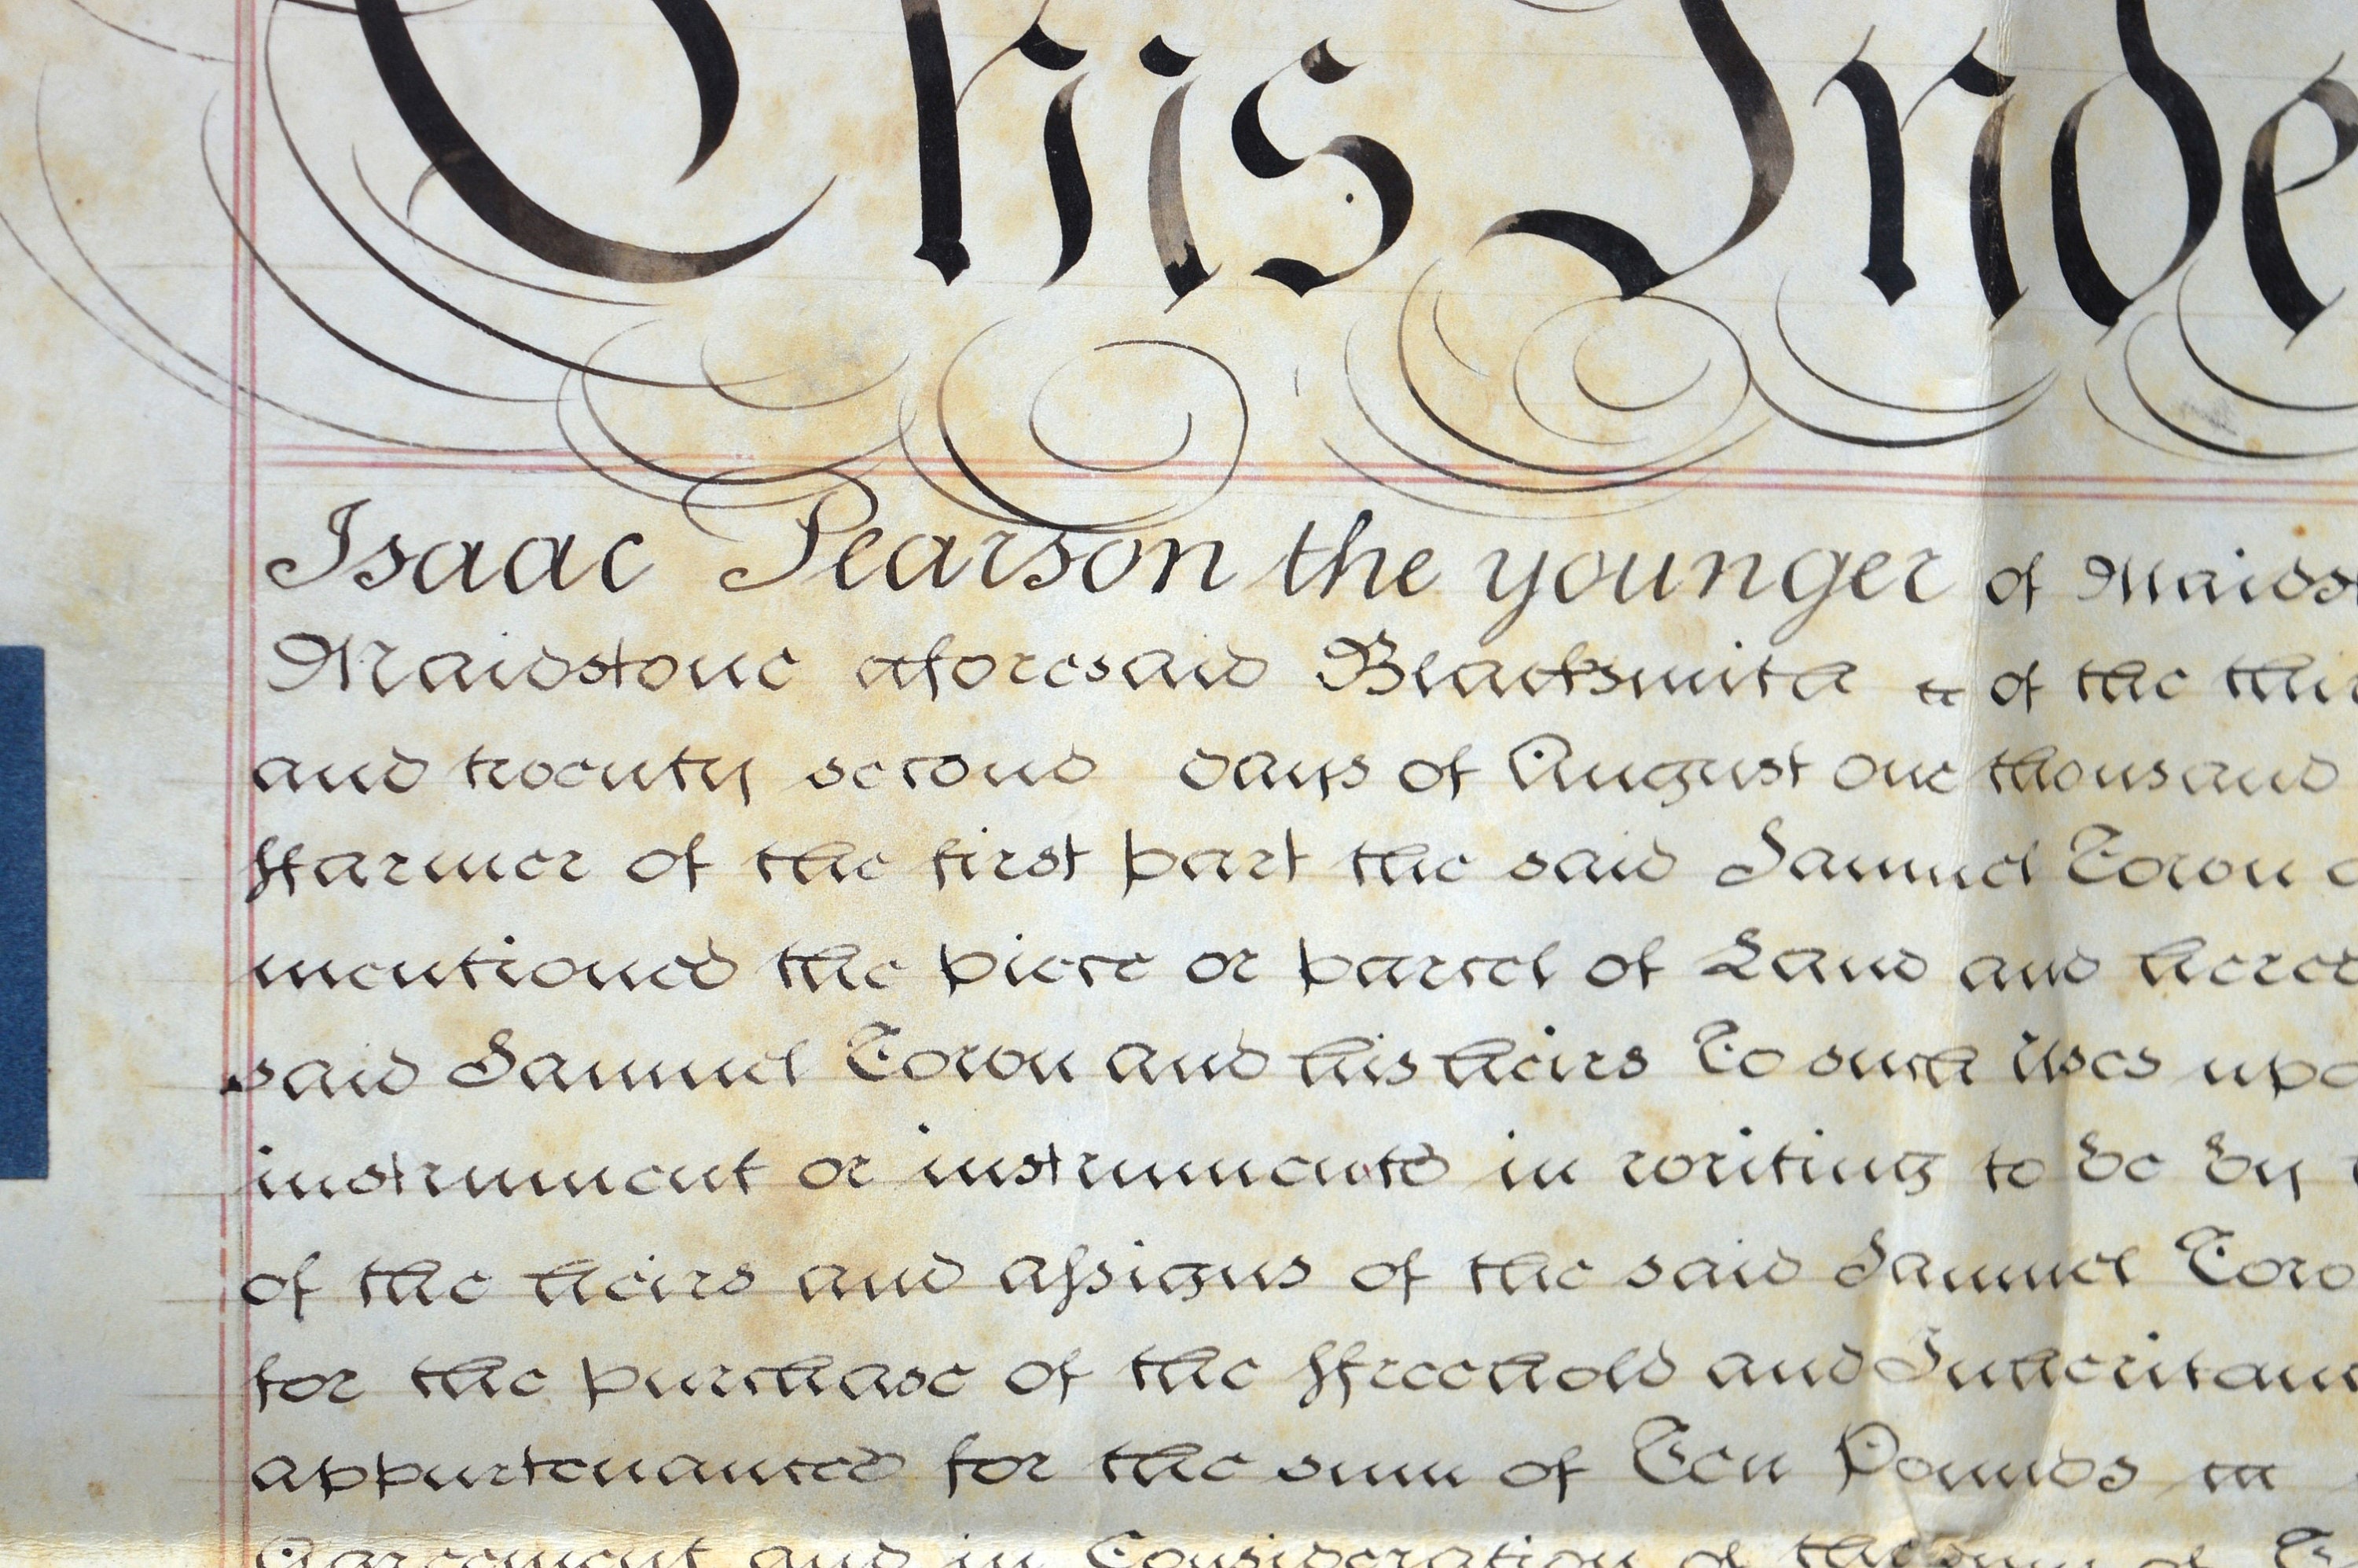 This Inde
Isaac Pearson the younger of Maidst
Maidstone aforesaid Blacksmith of the thir
and twenty second days of August one thousand
ffarmer of the first part the said Samuel Town
mentioned the piece or parcel of Land and hered
said Samuel Town and his heirs To such Uses upo
instrument or instruments in writing to be by
of the heirs and assigns of the said Samuel Tow
for the purchase of the ffreehold and Inheritan
appurtenances for the sum of Ten Pounds
Agreement and in Consideration of the sum of